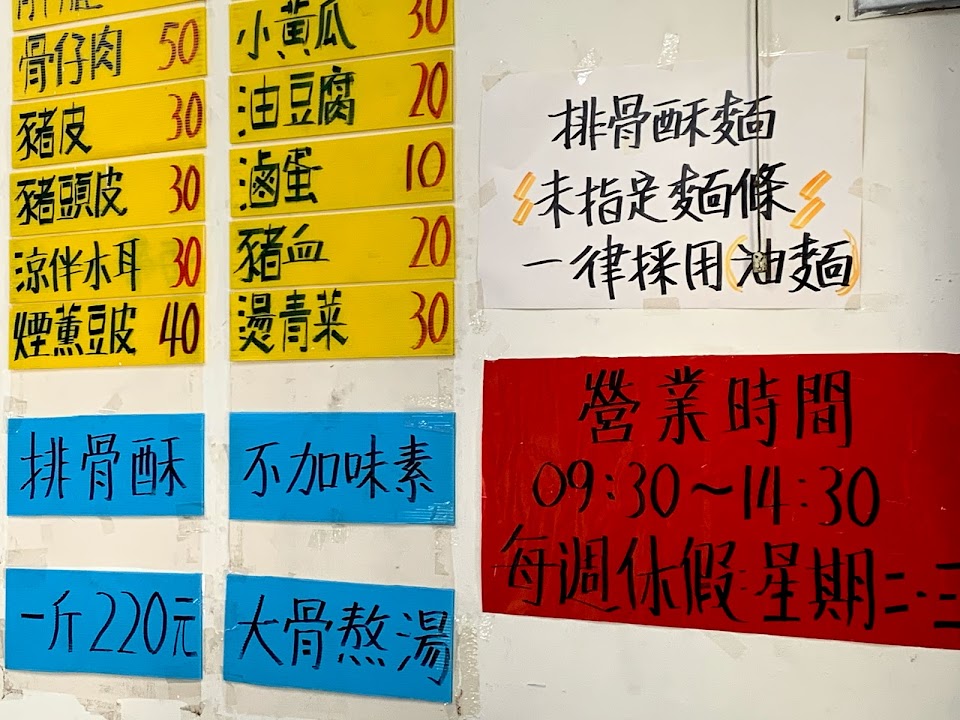 骨仔肉 50
豬皮 30
豬頭皮 30
涼伴木耳 30
煙薰豆皮 40
小黃瓜 30
油豆腐 20
滷蛋 10
豬血 20
燙青菜 30
排骨酥
一斤220元
不加味素
大骨熬湯
排骨酥麵
未指定麵條
一律採用(油麵)
營業時間
09:30~14:30
每週休假:星期二.三